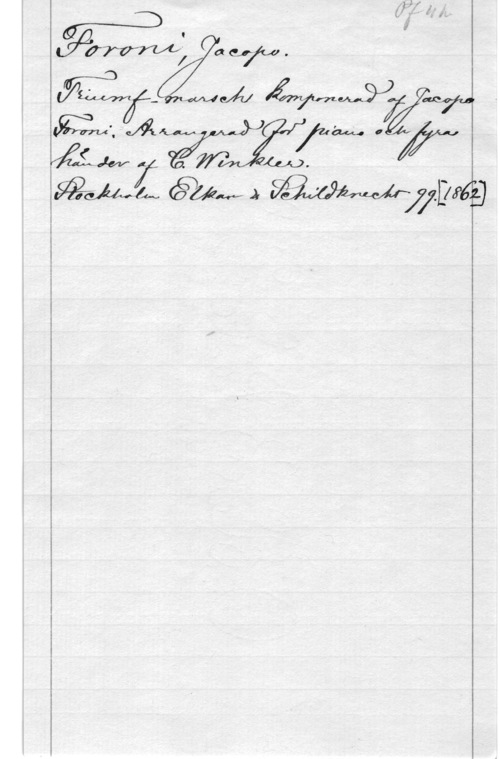 Pf 4h
Foroni, Jacopo.
Triumf-marsch komponerad af Jacopo
Foroni. Arrangerad för piano och fyra
händer af C. Winkler.
Stockholm Elkan & Schildknecht 99. [1862]